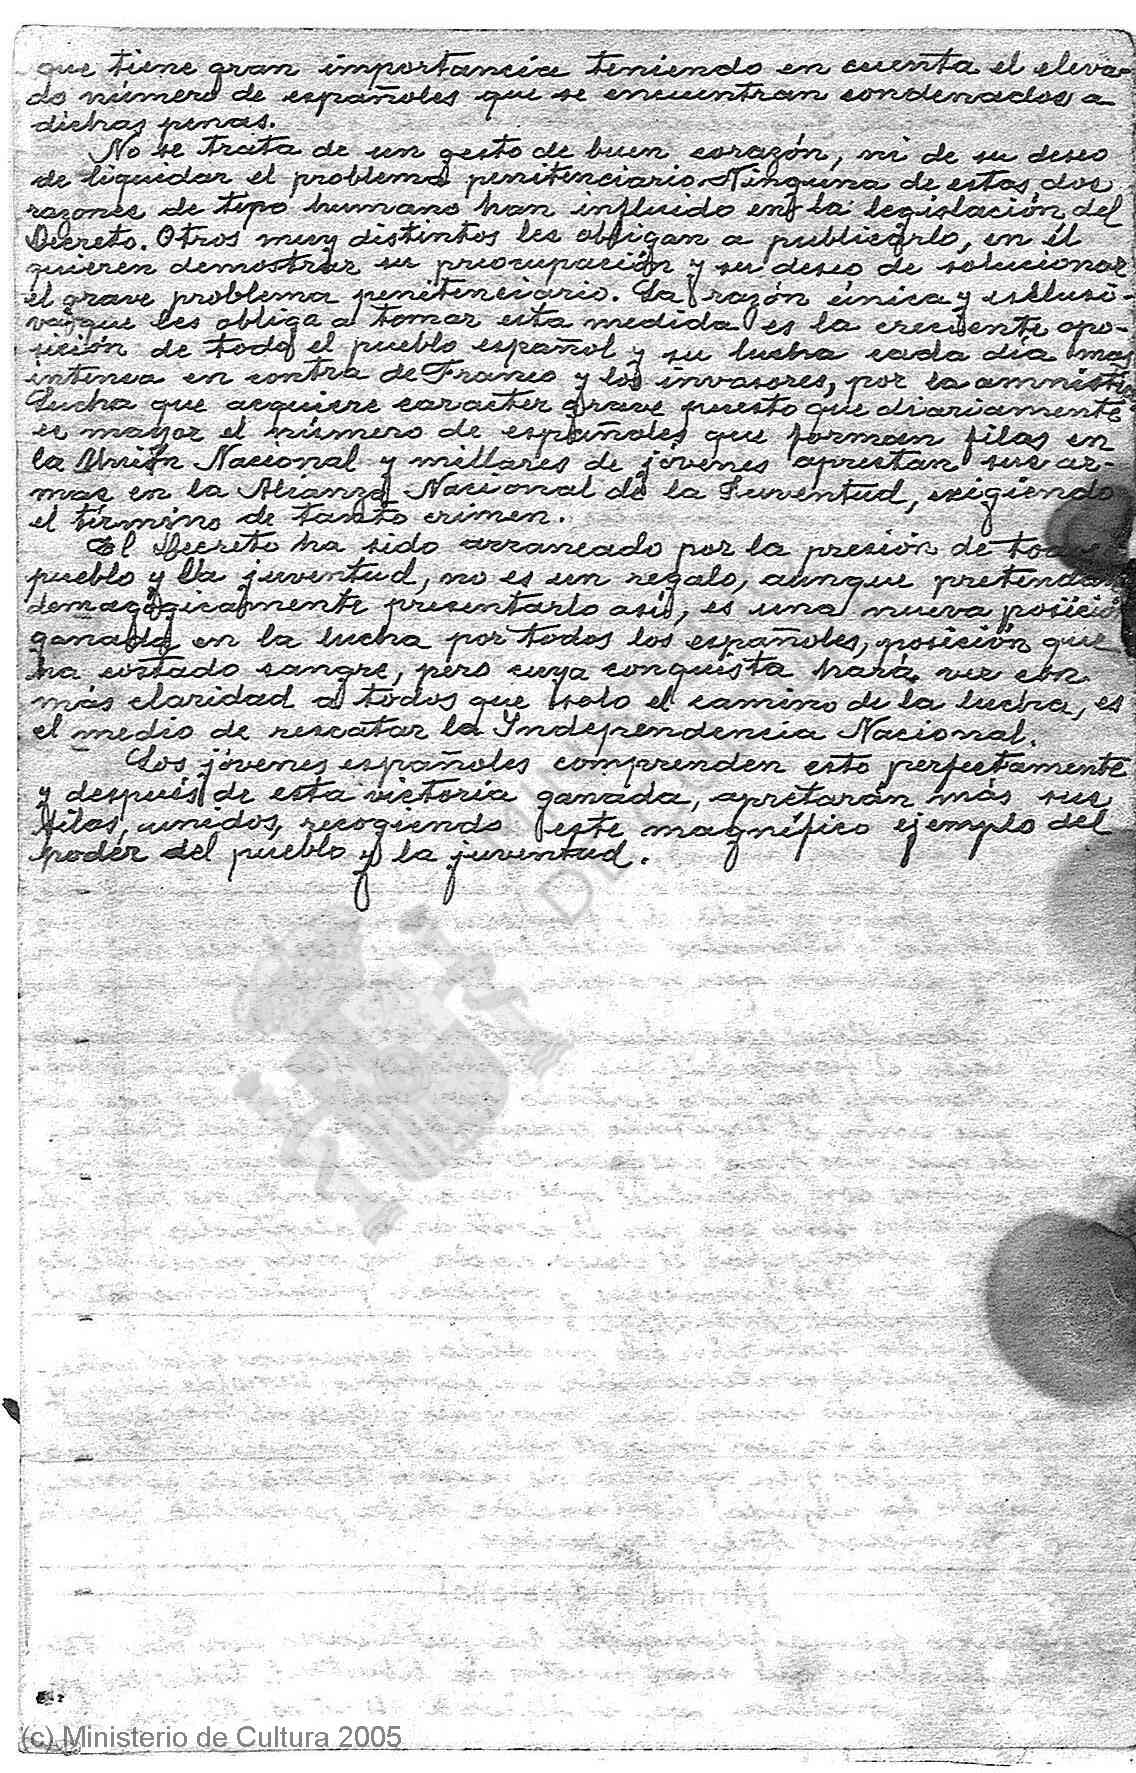 que tiene gran importancia teniendo en cuenta el eleva-
do número de españoles que se encuentran condenados a
dichas penas.
No se trata de un gesto de buen corazón, ni de su deseo
de liquidar el problema penitenciario. Ninguna de estas dos
razones de tipo humano han influido en la legislación del
Decreto. Otros muy distintos les obligan a publicarlo, en él
quieren demostrar su preocupación y su deseo de solucionar
el grave problema penitenciario. La razón única y esclusi-
va, que les obliga a tomar esta medida es la creciente opo-
sición de todo el pueblo español y su lucha cada día mas
intensa en contra de Franco y los invasores, por la amnistia
Lucha que acquiere caracter grave puesto que diariamente
es mayor el número de españoles que forman filas en
la Unión Nacional y millares de jóvenes aprestan sus ar-
mas en la Alianza Nacional de la Juventud, exigiendo
el término de tanto crimen.
El Decreto ha sido arrancado por la presión de todo
pueblo y la juventud, no es un regalo, aunque pretendan
demagógicamente presentarlo asi, es una nueva posición
ganada en la lucha por todos los españoles, posición que
ha costado sangre, pero cuya conquista hará ver con
más claridad a todos que solo el camino de la lucha, es
el medio de rescatar la Independencia Nacional.
Los jóvenes españoles comprenden esto perfectamente
y después de esta victoria ganada, apretarán más sus
filas, unidos, recogiendo este magnífico ejemplo del
poder del pueblo y la juventud.
(c) Ministerio de Cultura 2005